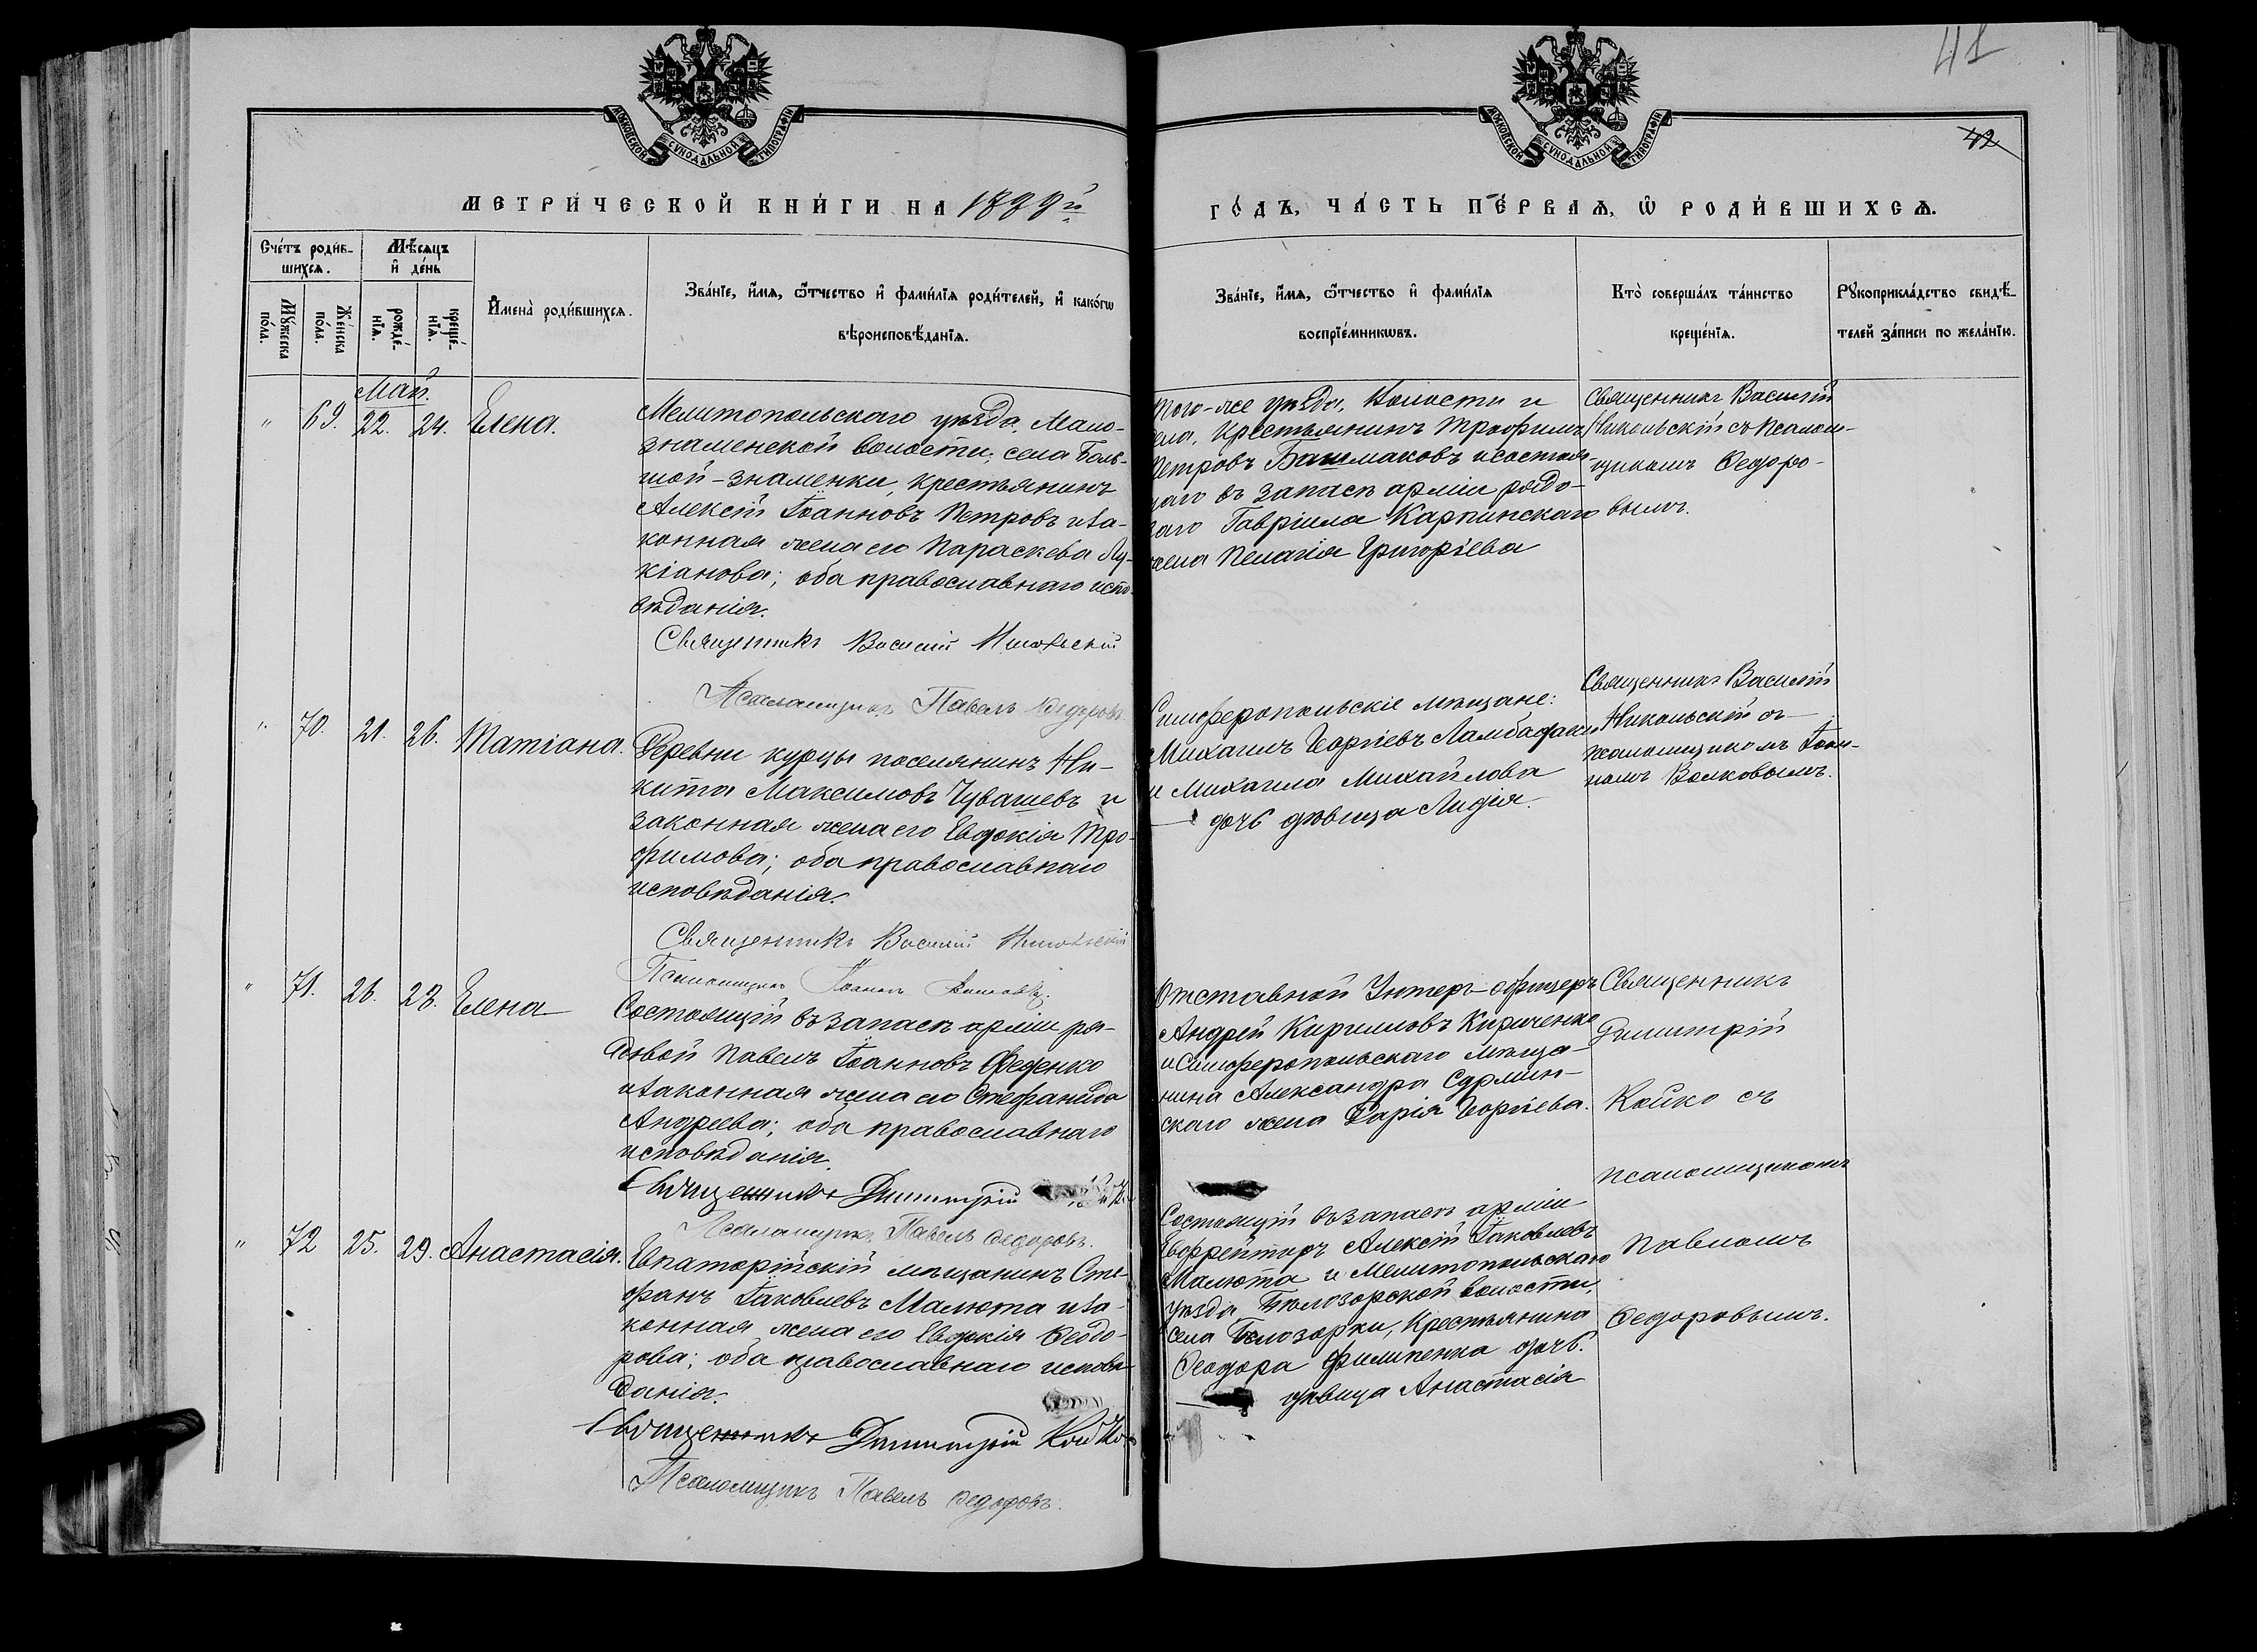 41
42
МОСКОВСКОЙ СУНОДАЛЬНОЙ ТИПОГРАФІИ
МОСКОВСКОЙ СУНОДАЛЬНОЙ ТИПОГРАФІИ
МЕТРИ́ЧЕСКОЙ КНИ́ГИ НА 1899й
ГО́ДЪ, ЧА́СТЬ ПЕ́РВАѦ, Ѽ РОДИ́ВШИХСѦ.
Сче́тъ роди́в-
шихсѧ.
Мѣ́сяцъ
и҆ де́нь
Мꙋ́жеска
по́ла.
Же́нска
по́ла.
рожде́-
нїѧ.
креще́-
нїѧ.
И҆мена̀ роди́вшихсѧ.
Зва́нїе, и҆́мѧ, ѻ҆́тчество и҆ фами́лїѧ роди́телей, и҆ како́гѡ
вѣроисповѣ́данїѧ.
Зва́нїе, и҆́мѧ, ѻ҆́тчество и҆ фами́лїѧ
воспрїе́мникѡвъ.
Кто̀ соверша́лъ та́инство
креще́нїѧ.
Рꙋкоприкла́дство свидѣ́-
телей за́писи по жела́нїю.
Май.
" 69. 22. 24. Елена.
Мелитопольскаго уѣзда, Мало-
знаменской волости, села Боль-
шой-Знаменки, крестьянинъ
Алексій Іоанновъ Петровъ и за-
конная жена его Параскева Лу-
кіанова; оба православнаго испо-
вѣданія.
Священникъ Василій Никольскій
Псаломщикъ Павелъ Ѳедоровъ.
того-же уѣзда, волости и
села, крестьянинъ Трофимъ
Петровъ Башмаковъ и состоя-
щаго въ запасѣ арміи рядо-
ваго Гавріила Карпинскаго
жена Пелагія Григорьева
Священникъ Василій
Никольскій съ псалом-
щикомъ Ѳедоро-
вымъ.
" 70. 21. 26. Татіана.
Деревни Курцы поселянинъ Ни-
кита Максимовъ Чувашевъ и
законная жена его Евдокія Тро-
фимова; оба православнаго
исповѣданія.
Священникъ Василій Никольскій
Псаломщикъ Іоаннъ Волковъ.
Симферопольскіе мѣщане:
Михаилъ Георгіевъ Ламбадаки
и Михаила Михайлова
дочь дѣвица Лидія.
Священникъ Василій
Никольскій съ
псаломщикомъ Іоан-
номъ Волковымъ.
" 71. 26. 28. Елена
Состоящій въ запасѣ арміи ря-
довой Павелъ Іоанновъ Феденко
и законная жена его Стефанида
Андреева; оба православнаго
исповѣданія.
Священникъ Димитрій
Псаломщикъ Павелъ Ѳедоровъ.
Отставной Унтеръ-офицеръ
Андрей Кирилловъ Кириченко
и Симферопольскаго мѣща-
нина Александра
скаго жена Дарія Георгіева.
Священникъ
Димитрій
Койко съ
псаломщикомъ
Павломъ
Ѳедоровымъ.
" 72 25. 29. Анастасія.
Евпаторійскій мѣщанинъ Сте-
фанъ Іаковлевъ Малюта и за-
конная жена его Евдокія Ѳеодо-
рова; оба православнаго исповѣ-
данія.
Священникъ Димитрій Койко
Псаломщикъ Павелъ Ѳедоровъ.
Состоящій въ запасѣ арміи
Ефрейторъ Алексій Іаковлевъ
Малюта и Мелитопольскаго
уѣзда, Бѣлозорской волости,
села Бѣлозорки, крестьянина
Ѳеодора Филипенка дочь
дѣвица Анастасія